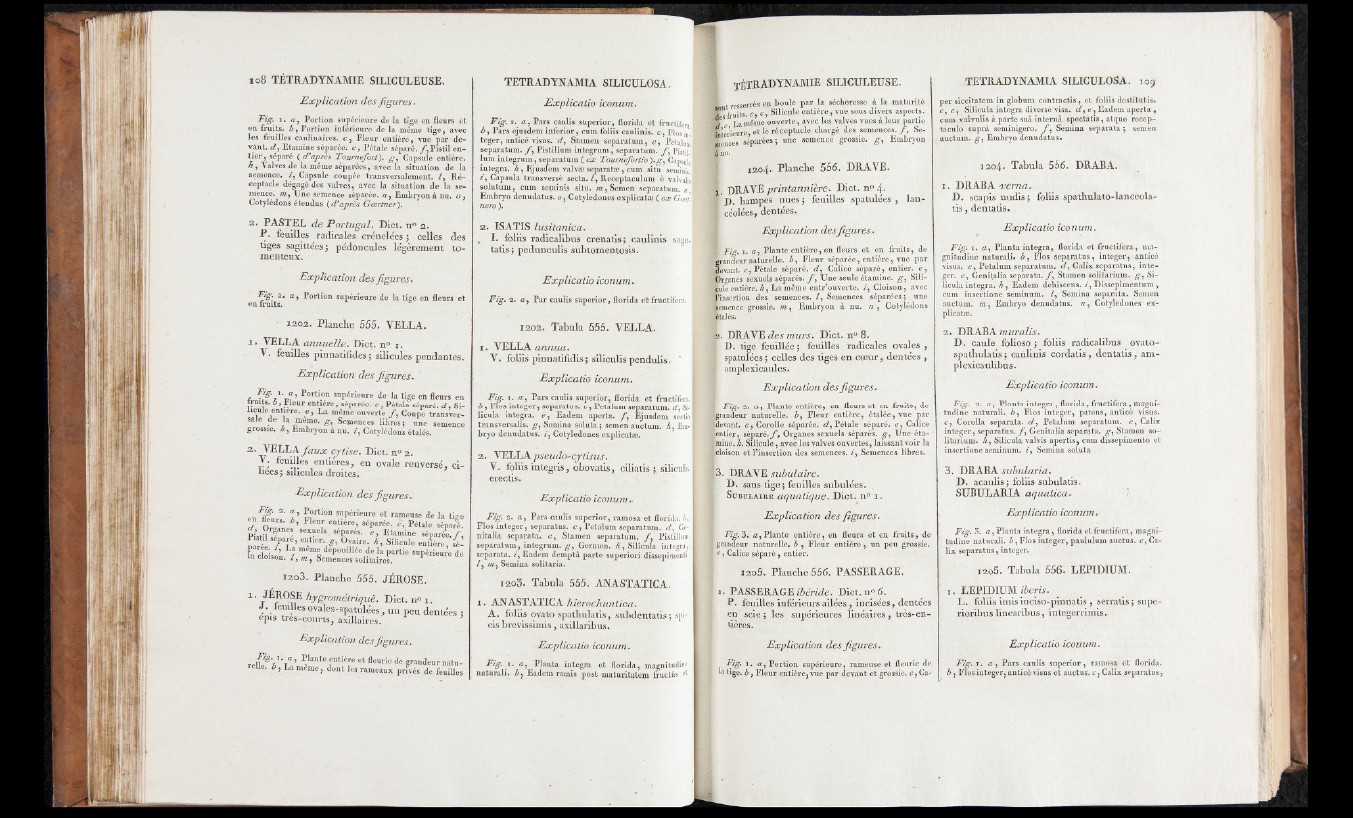 108 TÉTRADYNAMIE SILICULEUSE.
Explication des figures.
Fig. 1. a, Portion supérieure de la tige en fleurs et
en fruits. b, Portion inférieure de la même tige, avec
les feuilles caulinaires. c, Fleur entière, vue par de-
vant. d, Etamine séparée. e, Pétale séparé. f, Pistil en-
tier, séparé (d'après Tournefort). g, Capsule entière.
h, Valves de la même séparées, avec la situation de la
semence. i, Capsule coupée transversalement. l, Ré-
ceptacle dégagé des valves, avec la situation de la se-
mence. m, Une semence séparée. n, Embryon à nu. o,
Cotylédons étendus (d'après Gærtner).
2. PASTEL de Portugal. Dict. n° 2.
P. feuilles radicales crénelées ; celles des
tiges sagittées ; pédoncules légèrement to-
menteux.
Explication des figures.
Fig. 2. a, Portion supérieure de la tige en fleurs et
en fruits.
1202. Planche 555. VELLA.
1. VELLA annuelle. Dict. n° 1.
V. feuilles pinnatifides ; silicules pendantes.
Explication des figures.
Fig. 1. a, Portion supérieure de la tige en fleurs et
fruits. b, Fleur entière, séparée. c, Pétale séparé. d, Si-
licule entière. e, La même ouverte. f, Coupe transver-
sale de la même. g, Semences libres ; une semence
grossie. h, Embryon à nu. i, Cotylédons étalés.
2. VELLA faux cytise. Dict. n° 2.
V. feuilles entières, en ovale renversé, ci-
liées ; silicules droites.
Explication des figures.
Fig. 2. a, Portion supérieure et rameuse de la tige
en fleurs. b, Fleur entière, séparée. c, Pétale séparé.
d, Organes sexuels séparés. e, Etamine séparée. f,
Pistil séparé, entier. g, Ovaire. h, Silicule entière, sé-
parée. i, La même dépouillée de la partie supérieure de
la cloison. l, m, Semences solitaires.
1203. Planche 555. JÉROSE.
1. JÉROSE hygrométrique. Dict. n° 1.
J. feuilles ovales-spatulées, un peu dentées ;
épis très-courts, axillaires.
Explication des figures.
Fig. 1. a, Plante entière et fleurie de grandeur natu-
relle. b, La même, dont les rameaux privés de feuilles
TETRADYNAMIA SILICULOSA.
Explicatio iconum.
Fig. 1. a, Pars caulis superior, florida et fructifera.
b, Pars ejusdem inferior, cum foliis caulinis. c, Flos in-
teger, anticè visus. d, Stamen separatum. e, Petalum
separatum. f, Pistillum integrum, separatum. f, Pistil-
lum integrum, separatum (ex Tournefortio). g, Capsula
integra. h, Ejusdem valvæ separatæ, cum situ seminis.
i, Capsula transversè secta. l, Receptaculum è valvulis
solutum, cum seminis situ. m, Semen separatum. n,
Embryo denudatus. o, Cotyledones explicatæ (ex Gært-
nero).
2. ISATIS lusitanica.
I. foliis radicalibus crenatis ; caulinis sagit-
tatis ; pedunculis subtomentosis.
Explicatio iconum.
Fig. 2. a, Par caulis superior, florida et fructifera.
1202. Tabula 555. VELLA.
1. VELLA annua.
V. foliis pinnatifidis ; siliculis pendulis.
Explicatio iconum.
Fig. 1. a, Pars caulis superior, florida et fructifera.
b, Flos integer, separatus. c, Petalum separatum. d, Si-
licula integra. e, Eadem aperta. f, Ejusdem sectio
transversalis. g, Semina soluta ; semen auctum. h, Em-
bryo denudatus. i, Cotyledones explicatæ.
2. VELLA pseudo-cytisus.
V. foliis integris, obovatis, ciliatis ; siliculis
erectis.
Explicatio iconum.
Fig. 2. a, Pars caulis superior, ramosa et florida. b,
Flos integer, separatus. c, Petalum separatum. d, Ge-
nitalia separata. e, Stamen separatum. f, Pistillum
separatum, integrum. g, Germen. h, Silicula integra,
separata. i, Eadem demptâ parte superiori dissepimenti.
l, m, Semina solitaria.
1203. Tabula 555. ANASTATICA.
1. ANASTATICA hierochuntica.
A. foliis ovato spathulatis, subdentatis ; spi-
cis brevissimis, axillaribus.
Explicatio iconum.
Fig. 1. a, Planta integra et florida, magnitudine
naturali. b, Eadem ramis post maturitatem fructûs et
TÉTRADYNAMIE SILICULEUSE.
sont resserrés en boule par la sécheresse à la maturité
des fruits. c, c, Silicule entière, vue sous divers aspects.
d, e, La même ouverte, avec les valves vues à leur partie
intérieure, et le réceptacle chargé des semences. f, Se-
mences séparées ; une semence grossie. g, Embryon
à nu.
1204. Planche 556. DRAVE.
1. DRAVE printannière. Dict. n° 4.
D. hampes nues ; feuilles spatulées, lan-
céolées, dentées.
Explication des figures.
Fig. 1. a, Plante entière, en fleurs et en fruits, de
grandeur naturelle. b, Fleur séparée, entière, vue par
devant. c, Pétale séparé. d, Calice séparé, entier. e,
Organes sexuels séparés. f, Une seule étamine. g, Sili-
cule entière. h, La même entr'ouverte. i, Cloison, avec
l'insertion des semences. l, Semences séparées ; une
semence grossie. m, Embryon à nu. n, Cotylédons
étalés.
2. DRAVE des murs. Dict. n° 8.
D. tige feuillée ; feuilles radicales ovales,
spatulées ; celles des tiges en cœur, dentées,
amplexicaules.
Explication des figures.
Fig. 2. a, Plante entière, en fleurs et en fruits, de
grandeur naturelle. b, Fleur entière, étalée, vue par
devant. c, Corolle séparée. d, Pétale séparé. e, Calice
entier, séparé. f, Organes sexuels séparés. g, Une éta-
mine. h, Silicule, avec les valves ouvertes, laissant voir la
cloison et l'insertion des semences. i, Semences libres.
3. DRAVE subulaire.
D. sans tige ; feuilles subulées.
SUBULAIRE aquatique. Dict. n° 1.
Explication des figures.
Fig. 3. a, Plante entière, en fleurs et en fruits, de
grandeur naturelle. b, Fleur entière, un peu grossie.
c, Calice séparé, entier.
1205. Planche 556. PASSERAGE.
1. PASSERAGE ibéride. Dict. n° 6.
P. feuilles inférieurs ailées, incisées, dentées
en scie ; les supérieures linéaires, très-en-
tières.
Explication des figures.
Fig. 1. a, Portion supérieure, rameuse et fleurie de
la tige. b, Fleur entière, vue par devant et grossie. c, Ca-
TETRADYNAMIA SILICULOSA. 109
per siccitatem in globum contractis, et foliis destitutis.
c, c, Silicula integra diversè visa. d, e, Eadem aperta,
cum valvulis à parte suâ internâ spectatis, atque recep-
taculo suprà seminigero. f, Semina separata ; semen
auctum. g, Embryo denudatus.
1204. Tabula 556. DRABA.
1. DRABA verna.
D. scapis nudis ; foliis spathulato-lanceola-
tis, dentatis.
Explicatio iconum.
Fig. 1. a, Planta integra, florida et fructifera, ma-
gnitudine naturali. b, Flos separatus, integer, anticè
visus. c, Petalum separatum. d, Calix separatus, inte-
ger. e, Genitalia separata. f, Stamen solitarium. g, Si-
licula integra. h, Eadem dehiscens. i, Dissepimentum,
cum insertione seminum. l, Semina separata. Semen
auctum. m, Embryo denudatus. n, Cotyledones ex-
plicatæ.
2. DRABA muralis.
D. caule folioso ; foliis radicalibus ovato-
spathulatis ; caulinis cordatis, dentatis, am-
plexicaulibus.
Explicatio iconum.
Fig. 2. a, Planta integra, florida, fructifera, magni-
tudine naturali. b, Flos integer, patens, anticè visus.
c, Corolla separata. d, Petalum separatum. e, Calix
integer, separatus. f, Genitalia separata. g, Stamen so-
litarium. h, Silicula valvis apertis, cum dissepimento et
insertione seminum. i, Semina soluta
3. DRABA subularia.
D. acaulis ; foliis subulatis.
SUBULARIA aquatica.
Explicatio iconum.
Fig. 3. a, Planta integra, florida et fructifera, magni-
tudine naturali. b, Flos integer, paululum auctus. c, Ca-
lix separatus, integer.
1205. Tabula 556. LEPIDIUM.
1. LEPIDIUM iberis.
L. foliis imis inciso-pinnatis, serratis ; supe-
rioribus linearibus, integerrimis.
Explicatio iconum.
Fig. 1. a, Pars caulis superior, ramosa et florida.
b, Flos integer, anticè visus et auctus. c, Calix separatus,